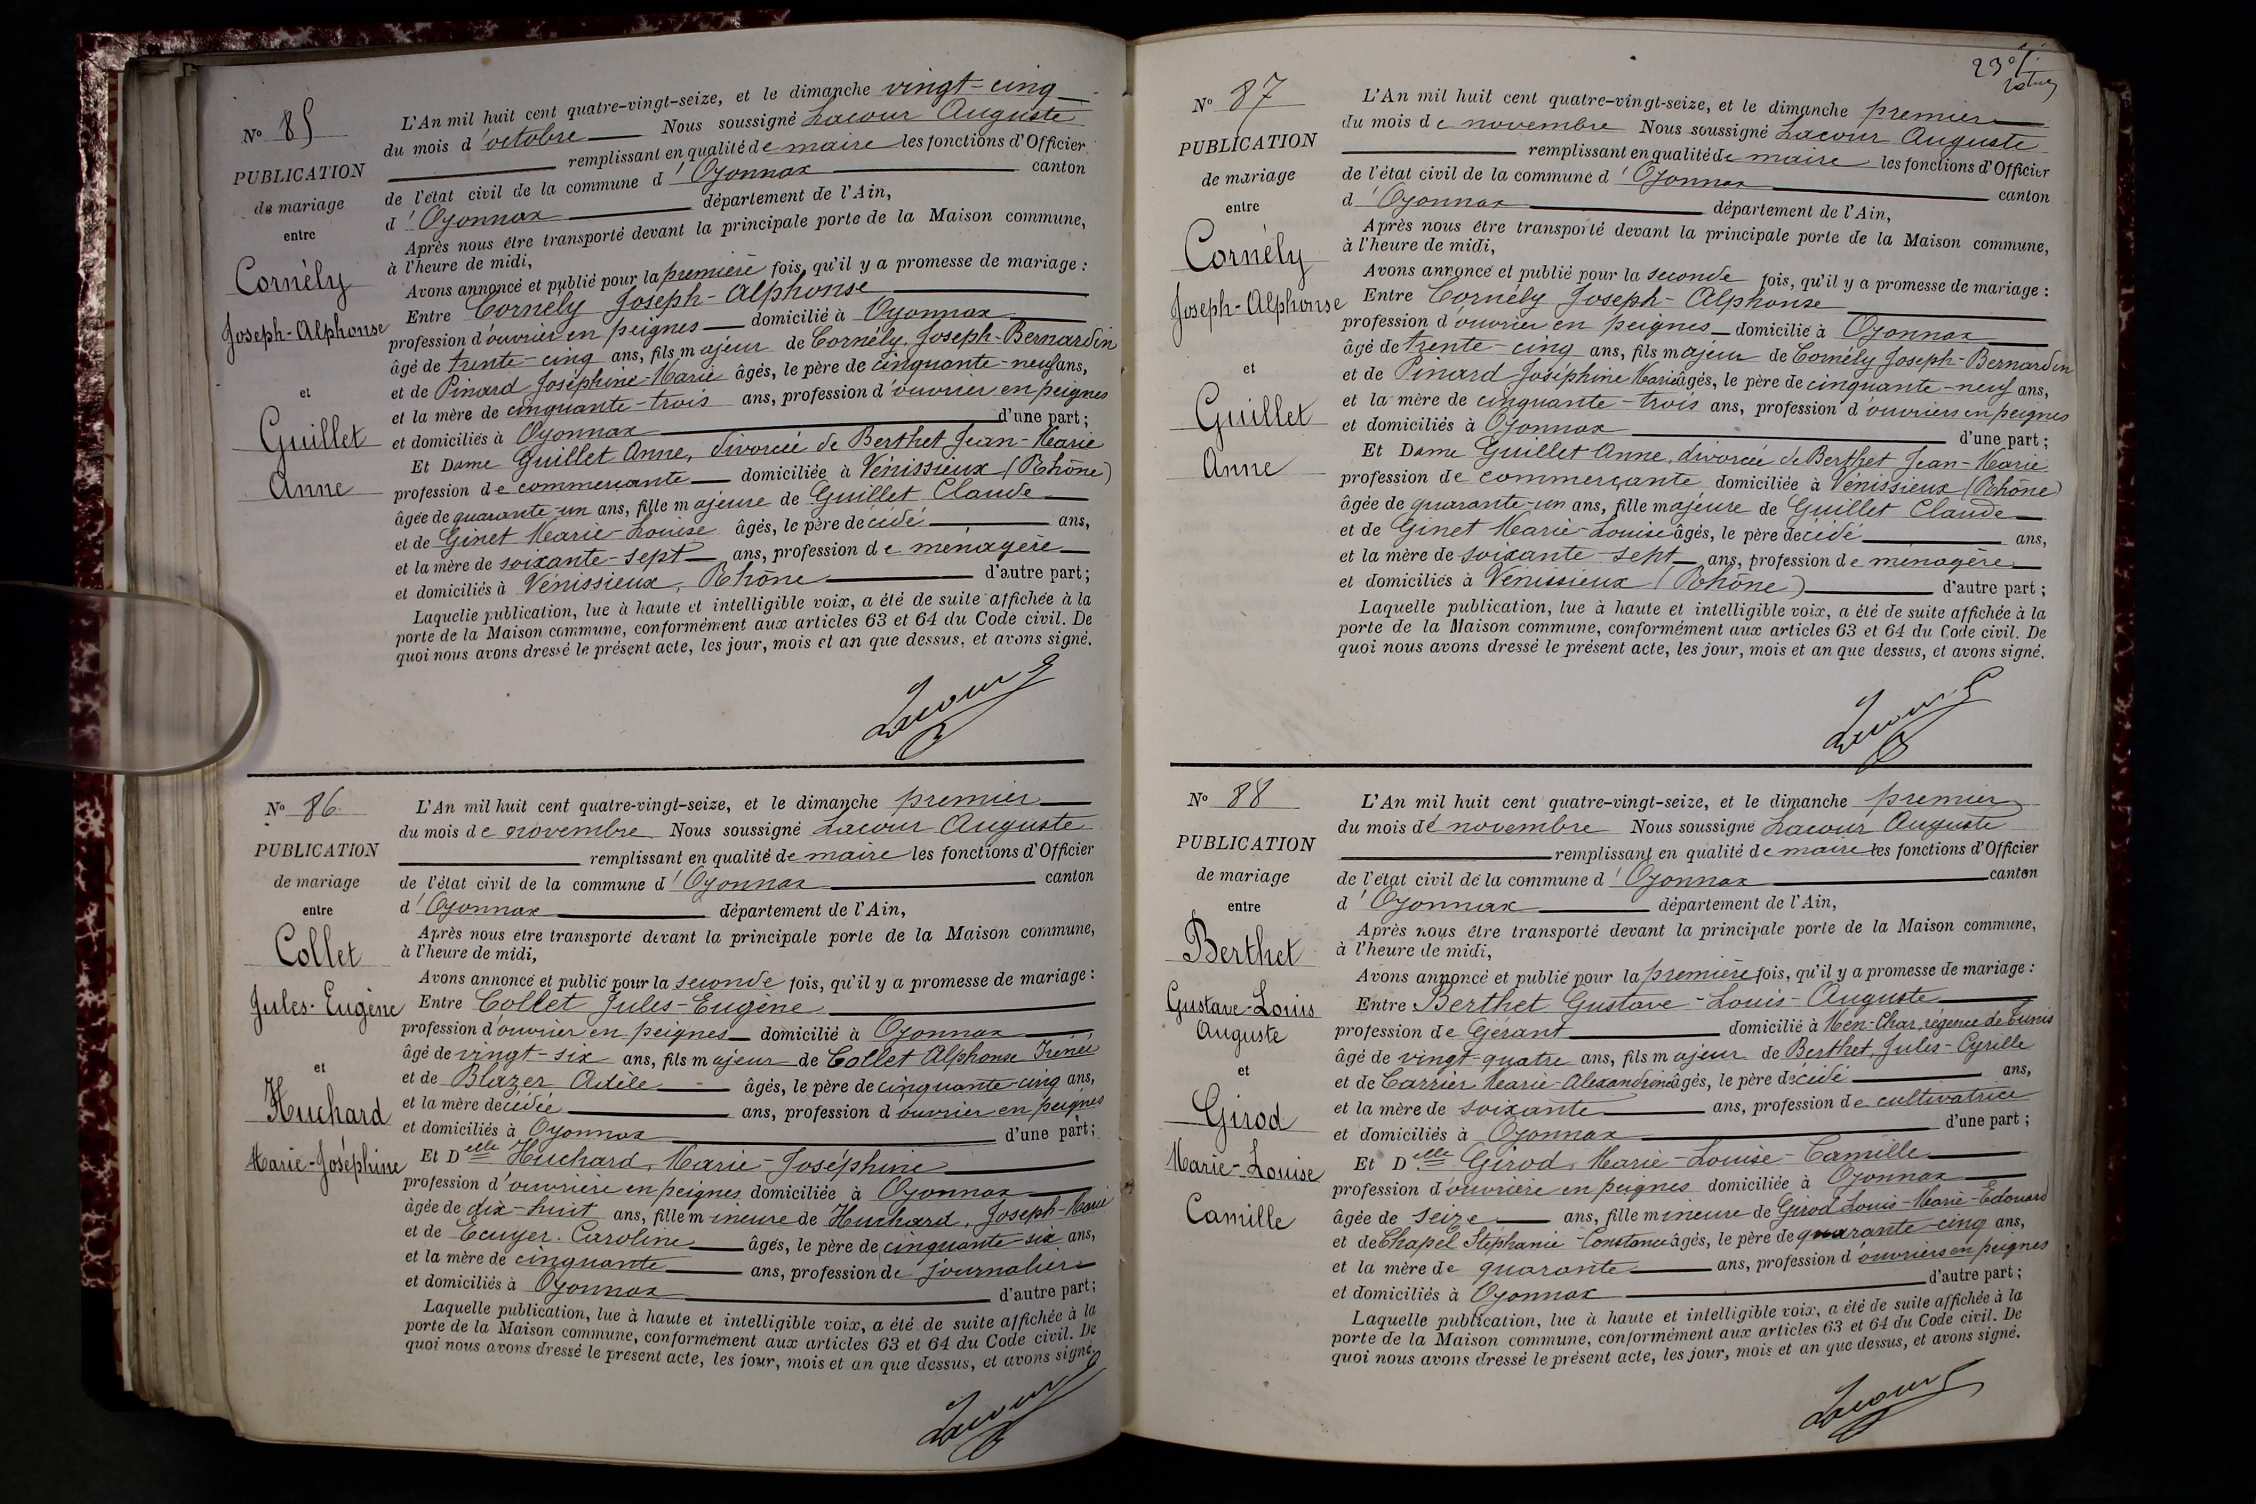 N° 85
PUBLICATION
de mariage
entre
Cornély
Joseph-Alphonse
et
Guillet
Anne
L'An mil huit cent quatre-vingt-seize, et le dimanche vingt-cinq
du mois d'octobre Nous soussigné Lacour Auguste
remplissant en qualité de maire les fonctions d'Officier
de l'état civil de la commune d'Oyonnax canton
d'Oyonnax département de l'Ain,
Après nous être transporté devant la principale porte de la Maison commune,
à l'heure de midi,
Avons annoncé et publié pour la première fois, qu'il y a promesse de mariage :
Entre Cornély Joseph-Alphonse
profession d'ouvrier en peignes domicilié à Oyonnax
âgé de trente-cinq ans, fils majeur de Cornély Joseph-Bernardin
et de Pinard Joséphine-Marie âgés, le père de cinquante-neuf ans,
et la mère de cinquante-trois ans, profession d'ouvrier en peignes
et domiciliés à Oyonnax d'une part ;
Et Dame Guillet Anne, divorcée de Berthet Jean-Marie
profession de commerçante domiciliée à Vénissieux (Rhône)
âgée de quarante-un ans, fille majeure de Guillet Claude
et de Ginet Marie-Louise âgés, le père décédé ans,
et la mère de soixante-sept ans, profession de ménagère
et domiciliés à Vénissieux, Rhône d'autre part ;
Laquelle publication, lue à haute et intelligible voix, a été de suite affichée à la
porte de la Maison commune, conformément aux articles 63 et 64 du Code civil. De
quoi nous avons dressé le présent acte, les jour, mois et an que dessus, et avons signé.
Lacour
N° 86
PUBLICATION
de mariage
entre
Collet
Jules-Eugène
et
Huchard
Marie-Joséphine
L'An mil huit cent quatre-vingt-seize, et le dimanche premier
du mois de novembre Nous soussigné Lacour Auguste
remplissant en qualité de maire les fonctions d'Officier
de l'état civil de la commune d'Oyonnax canton
d'Oyonnax département de l'Ain,
Après nous être transporté devant la principale porte de la Maison commune,
à l'heure de midi,
Avons annoncé et publié pour la seconde fois, qu'il y a promesse de mariage :
Entre Collet Jules-Eugène
profession d'ouvrier en peignes domicilié à Oyonnax
âgé de vingt-six ans, fils majeur de Collet Alphonse Irénée
et de Blazer Adèle âgés, le père de cinquante-cinq ans,
et la mère décédée ans, profession d'ouvrier en peignes
et domiciliés à Oyonnax d'une part ;
Et Delle Huchard, Marie-Joséphine
profession d'ouvrière en peignes domiciliée à Oyonnax
âgée de dix-huit ans, fille mineure de Huchard, Joseph-Marie
et de Ecuyer Caroline âgés, le père de cinquante-six ans,
et la mère de cinquante ans, profession de journaliers
et domiciliés à Oyonnax d'autre part ;
Laquelle publication, lue à haute et intelligible voix, a été de suite affichée à la
porte de la Maison commune, conformément aux articles 63 et 64 du Code civil. De
quoi nous avons dressé le présent acte, les jour, mois et an que dessus, et avons signé.
Lacour
N° 87
PUBLICATION
de mariage
entre
Cornély
Joseph-Alphonse
et
Guillet
Anne
L'An mil huit cent quatre-vingt-seize, et le dimanche premier
du mois de novembre Nous soussigné Lacour Auguste
remplissant en qualité de maire les fonctions d'Officier
de l'état civil de la commune d'Oyonnax canton
d'Oyonnax département de l'Ain,
Après nous être transporté devant la principale porte de la Maison commune,
à l'heure de midi,
Avons annoncé et publié pour la seconde fois, qu'il y a promesse de mariage :
Entre Cornély Joseph-Alphonse
profession d'ouvrier en peignes domicilié à Oyonnax
âgé de trente-cinq ans, fils majeur de Cornély Joseph-Bernardin
et de Pinard Joséphine Marie âgés, le père de cinquante-neuf ans,
et la mère de cinquante-trois ans, profession d'ouvriers en peignes
et domiciliés à Oyonnax d'une part ;
Et Dame Guillet Anne, divorcée de Berthet Jean-Marie
profession de commerçante domiciliée à Vénissieux (Rhône)
âgée de quarante-un ans, fille majeure de Guillet Claude
et de Ginet Marie-Louise âgés, le père décédé ans,
et la mère de soixante-sept ans, profession de ménagère
et domiciliés à Vénissieux (Rhône) d'autre part ;
Laquelle publication, lue à haute et intelligible voix, a été de suite affichée à la
porte de la Maison commune, conformément aux articles 63 et 64 du Code civil. De
quoi nous avons dressé le présent acte, les jour, mois et an que dessus, et avons signé.
Lacour
N° 88
PUBLICATION
de mariage
entre
Berthet
Gustave-Louis
Auguste
et
Girod
Marie-Louise
Camille
L'An mil huit cent quatre-vingt-seize, et le dimanche premier
du mois de novembre Nous soussigné Lacour Auguste
remplissant en qualité de maire les fonctions d'Officier
de l'état civil de la commune d'Oyonnax canton
d'Oyonnax département de l'Ain,
Après nous être transporté devant la principale porte de la Maison commune,
à l'heure de midi,
Avons annoncé et publié pour la première fois, qu'il y a promesse de mariage :
Entre Berthet Gustave-Louis-Auguste
profession de Gérant domicilié à Men-Char, régence de Tunis
âgé de vingt-quatre ans, fils majeur de Berthet, Jules-Cyrille
et de Carrier Marie-Alexandrine âgés, le père décédé ans,
et la mère de soixante ans, profession de cultivatrice
et domiciliés à Oyonnax d'une part ;
Et Delle Girod, Marie-Louise-Camille
profession d'ouvrière en peignes domiciliée à Oyonnax
âgée de seize ans, fille mineure de Girod Louis-Marie-Edouard
et de Chapel Stéphanie-Constance âgés, le père de quarante-cinq ans,
et la mère de quarante ans, profession d'ouvriers en peignes
et domiciliés à Oyonnax d'autre part ;
Laquelle publication, lue à haute et intelligible voix, a été de suite affichée à la
porte de la Maison commune, conformément aux articles 63 et 64 du Code civil. De
quoi nous avons dressé le présent acte, les jour, mois et an que dessus, et avons signé.
Lacour